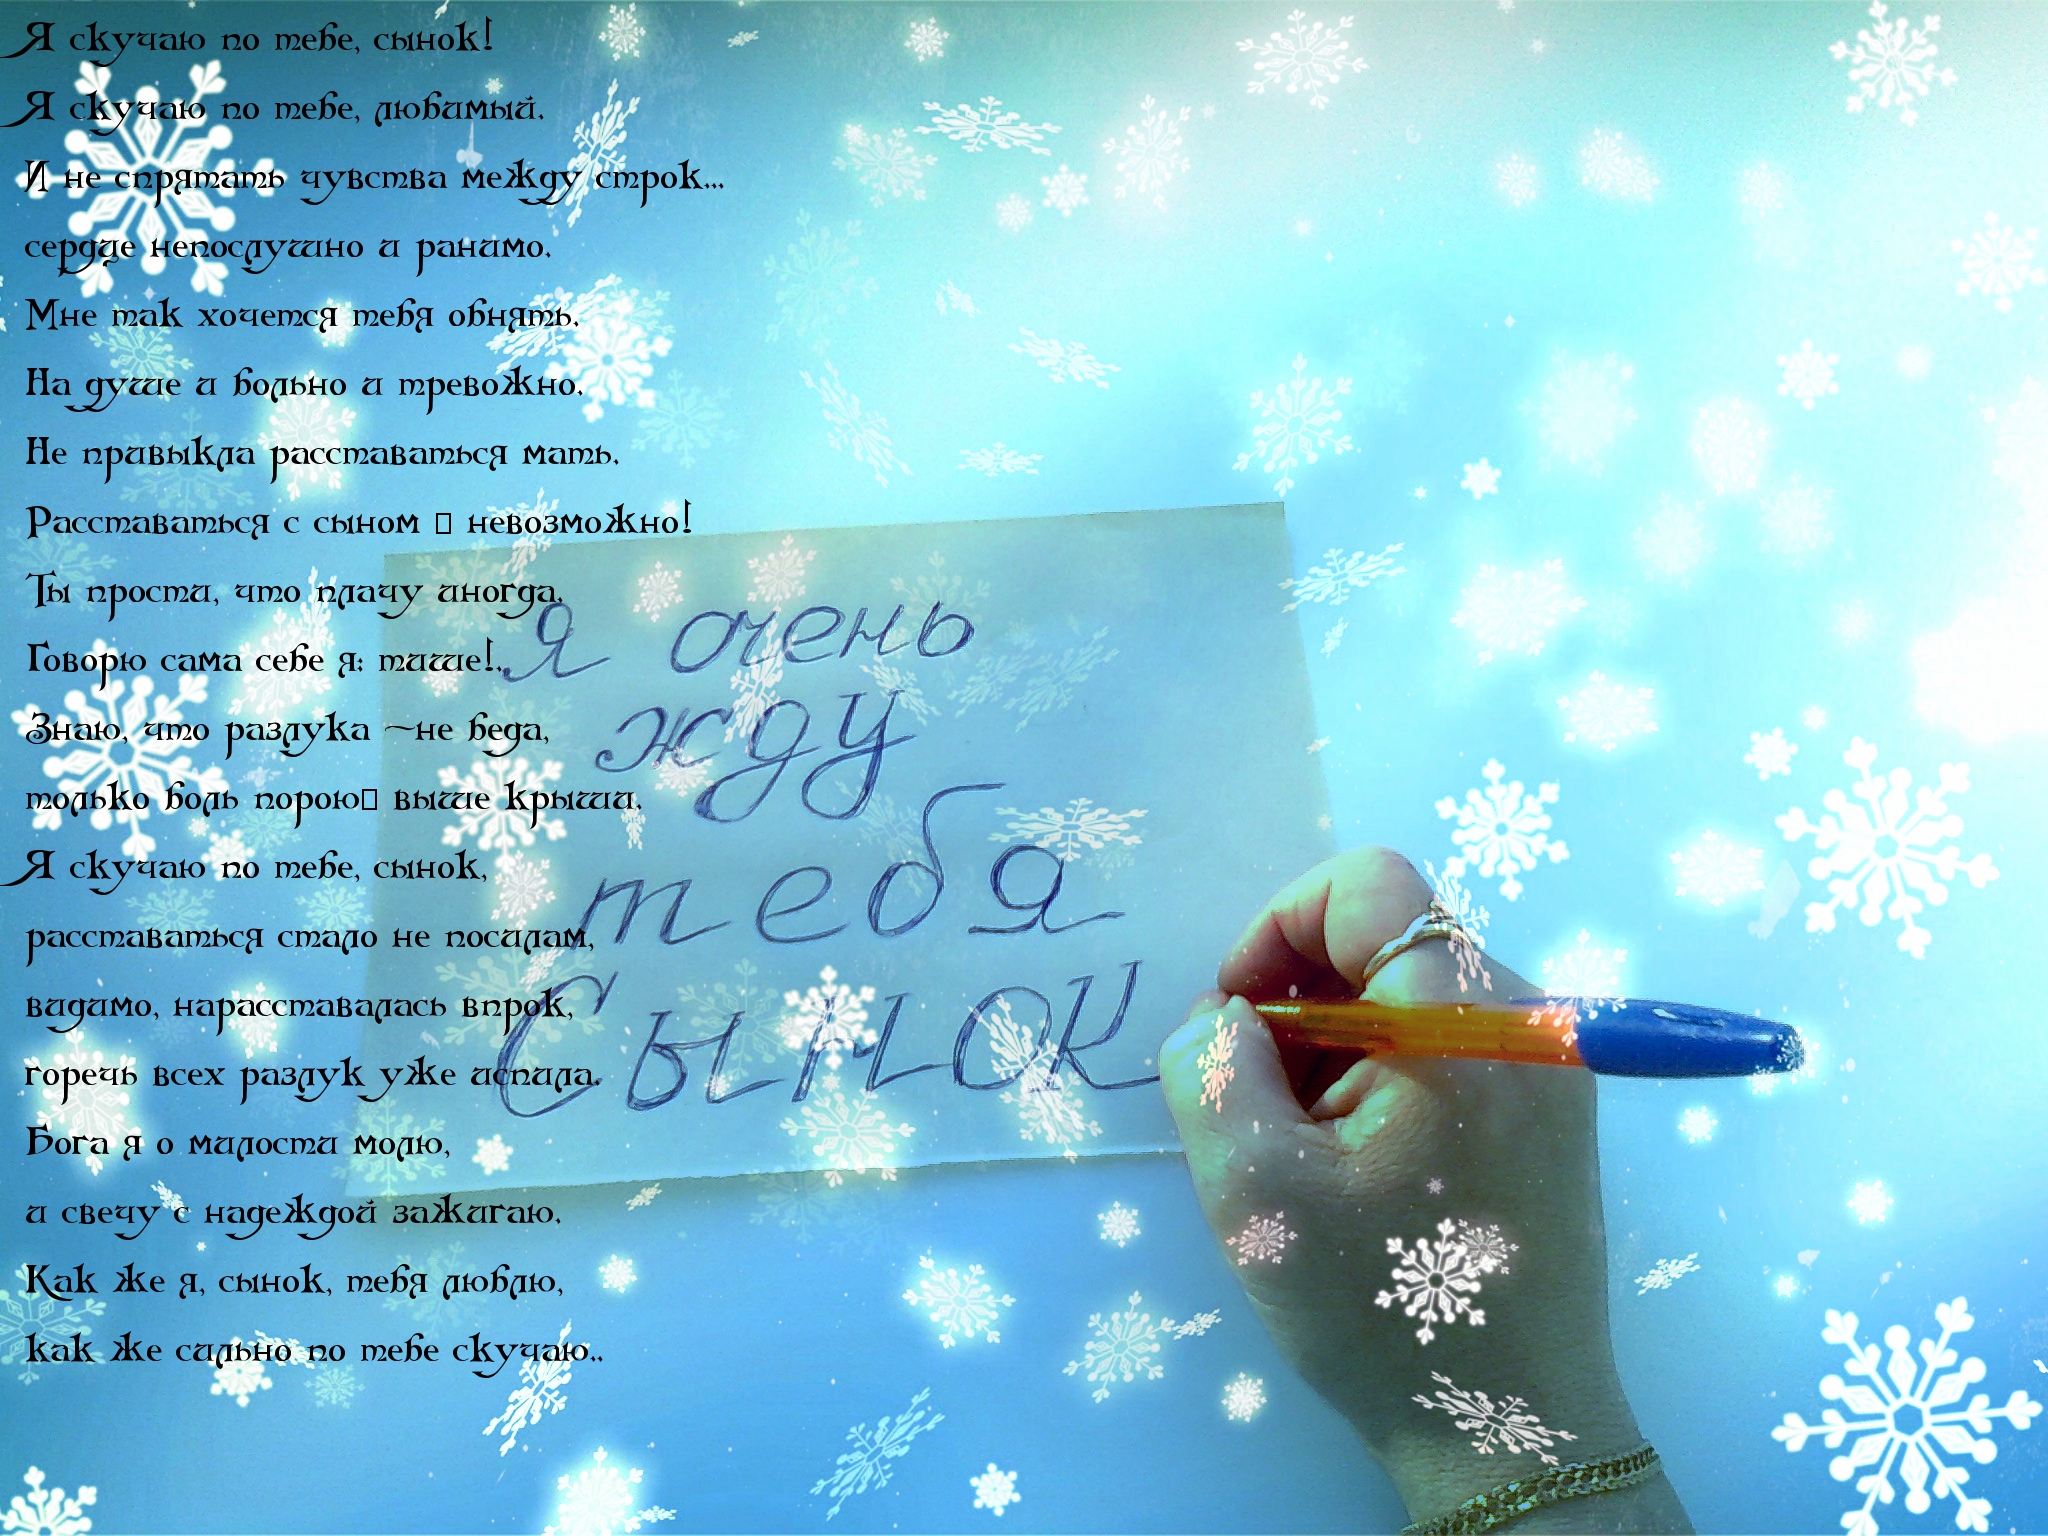 Я скучаю по тебе, сынок!
Я скучаю по тебе, любимый.
И не спрятать чувства между строк...
сердце непослушно и ранимо.
Мне так хочется тебя обнять.
На душе и больно и тревожно.
Не привыкла расставаться мать.
Расставаться с сыном □ невозможно!
Ты прости, что плачу иногда,
Говорю сама себе я: тише!.
Знаю, что разлука ~не беда,
только боль порою□ выше крыши.
Я скучаю по тебе, сынок,
расставаться стало не посилам,
видимо, нарасставалась впрок,
горечь всех разлук уже испила.
Бога я о милости молю,
и свечу с надеждой зажигаю.
Как же я, сынок, тебя люблю,
как же сильно по тебе скучаю..
я очень
жду
тебя
Сынок